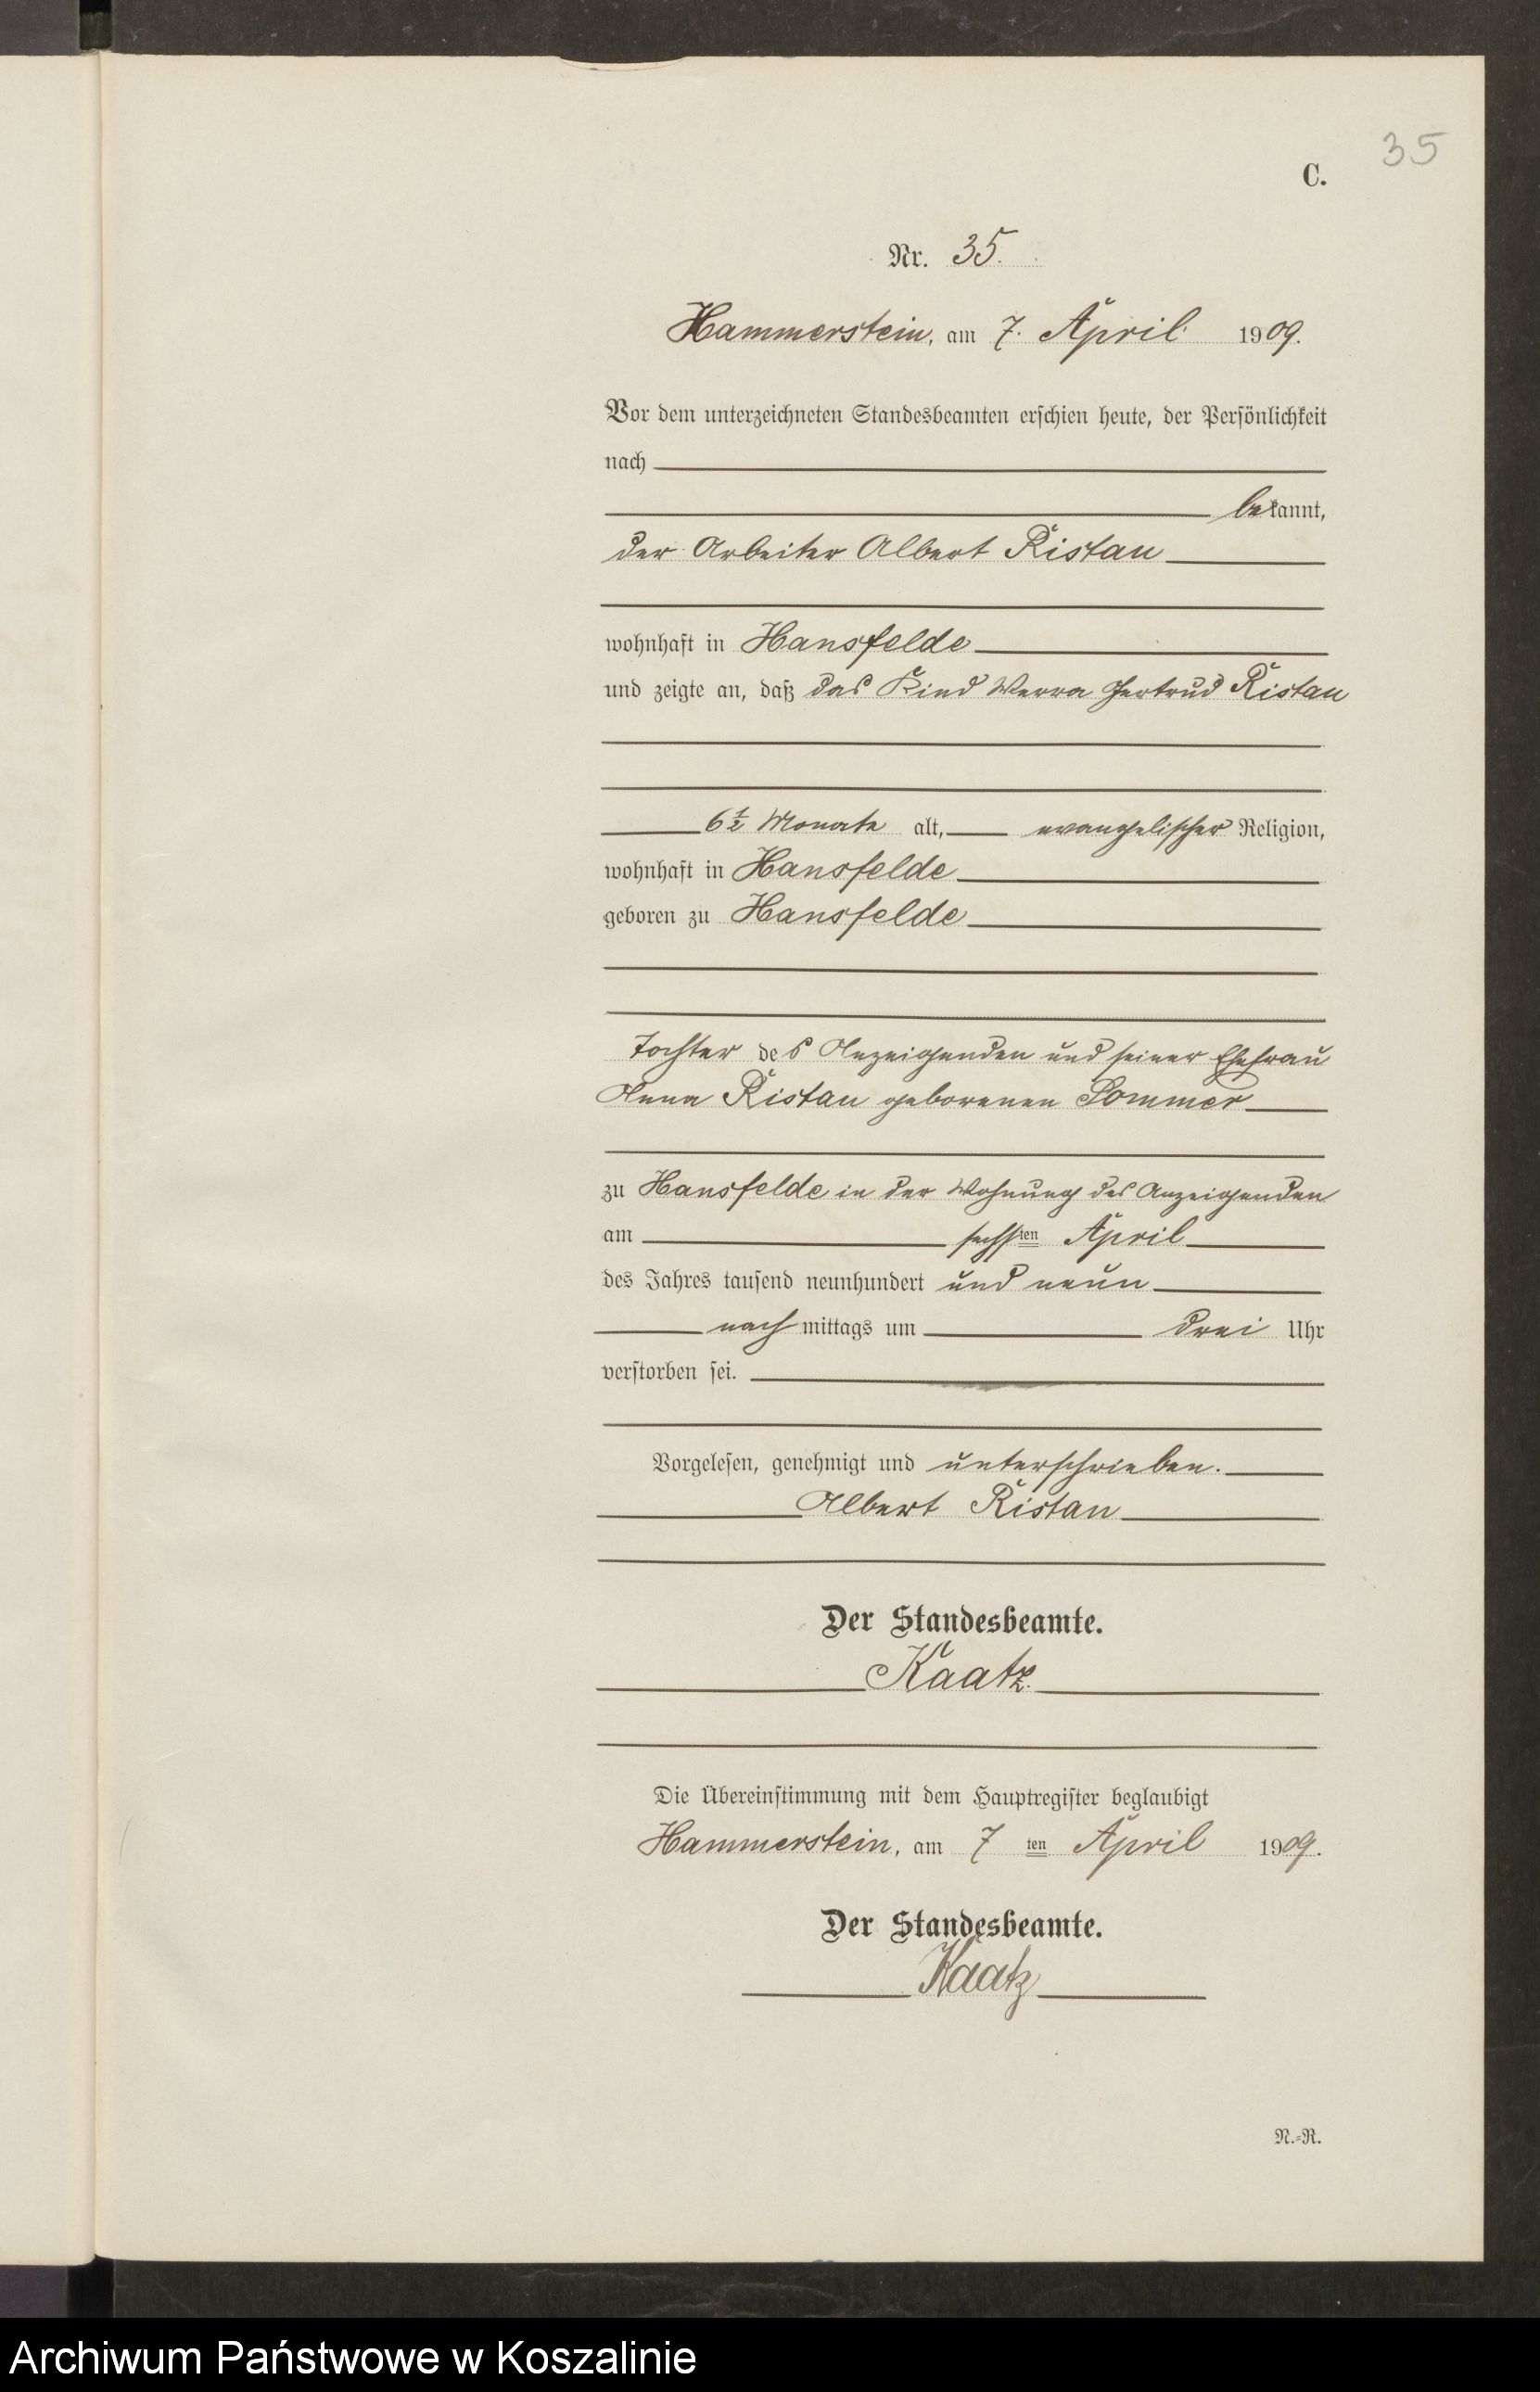 35
C.
Nr. 35.
Hammerstein, am 7. April 1909.
Vor dem unterzeichneten Standesbeamten erschien heute, der Persönlichkeit
nach
bekannt,
der Arbeiter Albert Ristau
wohnhaft in Hansfelde
und zeigte an, daß das Kind Werra Gertrud Ristau
6½ Monate alt, evangelischer Religion,
wohnhaft in Hansfelde
geboren zu Hansfelde
Tochter des Anzeigenden und seiner Ehefrau
Anna Ristau geborenen Sommer
zu Hansfelde in der Wohnung des Anzeigenden
am sechsten April
des Jahres tausend neunhundert und neun
nachmittags um drei Uhr
verstorben sei.
Vorgelesen, genehmigt und unterschrieben.
Albert Ristau
Der Standesbeamte.
Kaatz.
Die Übereinstimmung mit dem Hauptregister beglaubigt
Hammerstein, am 7ten April 1909.
Der Standesbeamte.
Kaatz
N.-R.
Archiwum Państwowe w Koszalinie